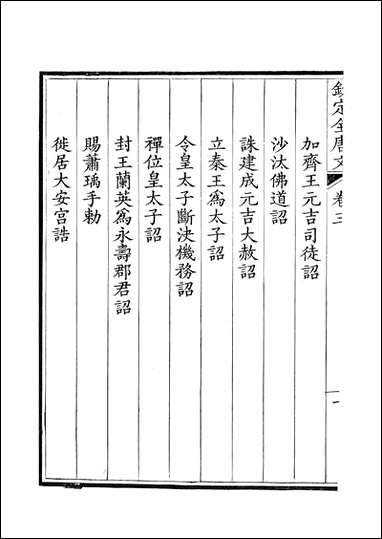 欽定全唐文 卷三 一
加齊王元吉司徒詔
沙汰佛道詔
誅建成元吉大赦詔
立秦王為太子詔
令皇太子斷決機務詔
禪位皇太子詔
封王蘭英為永壽郡君詔
賜蕭瑀手勅
徙居大安宮誥